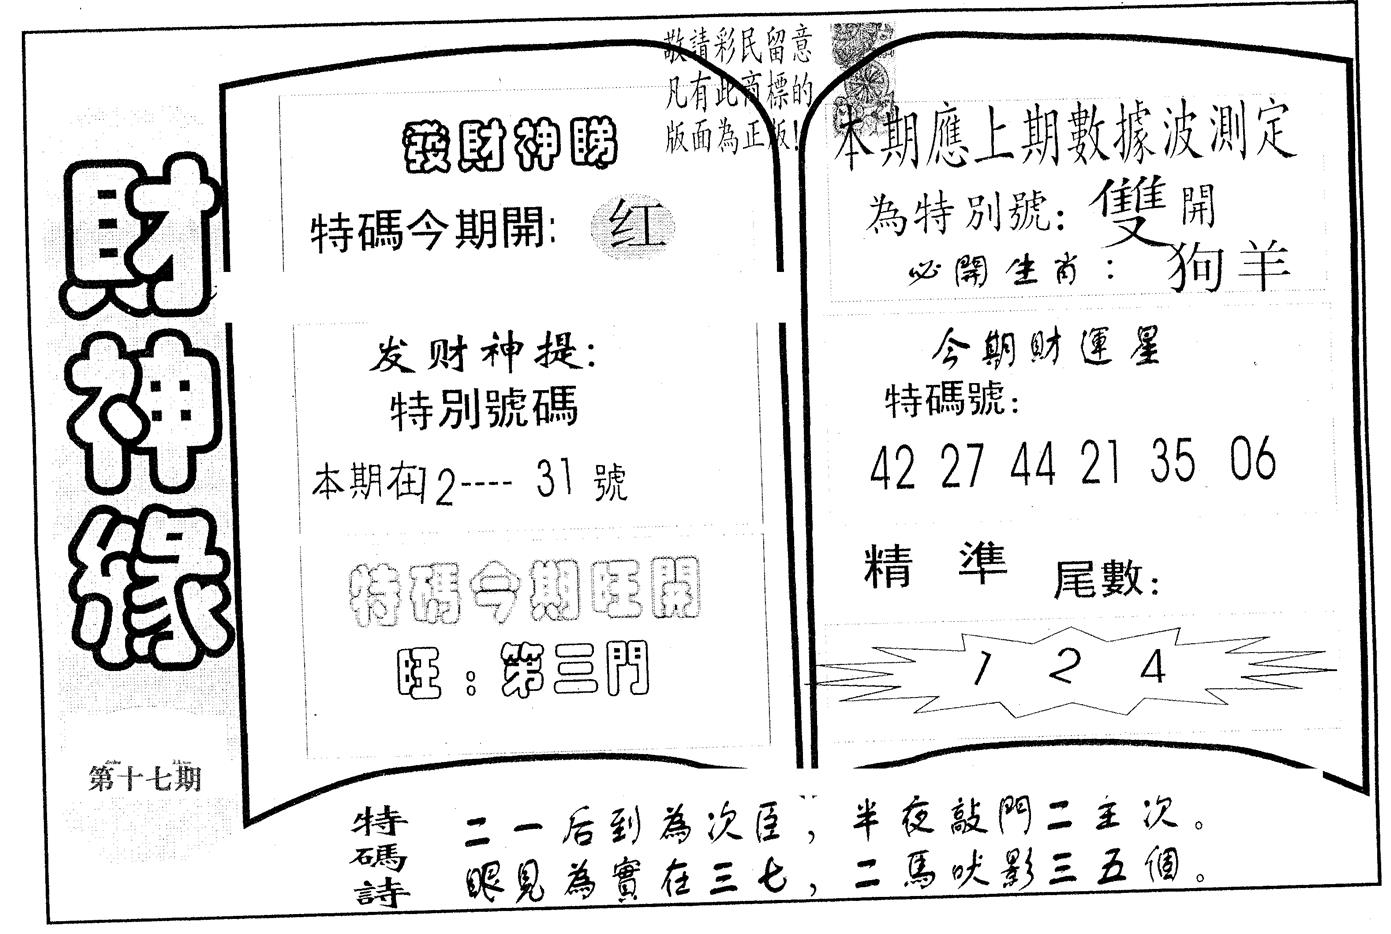 財神緣
第十七期
敬請彩民留意
凡有此商標的
版面為正版!
發財神睇
特碼今期開: 红
发财神提:
特別號碼
本期在12---- 31號
特碼今期旺開
旺:第三門
本期應上期數據波測定
為特別號: 雙開
必開生肖: 狗羊
今期財運星
特碼號:
42 27 44 21 35 06
精 準 尾數:
1 2 4
特碼詩
二一后到為次臣,半夜敲門二主次。
眼見為實在三七,二馬吠影三五個。